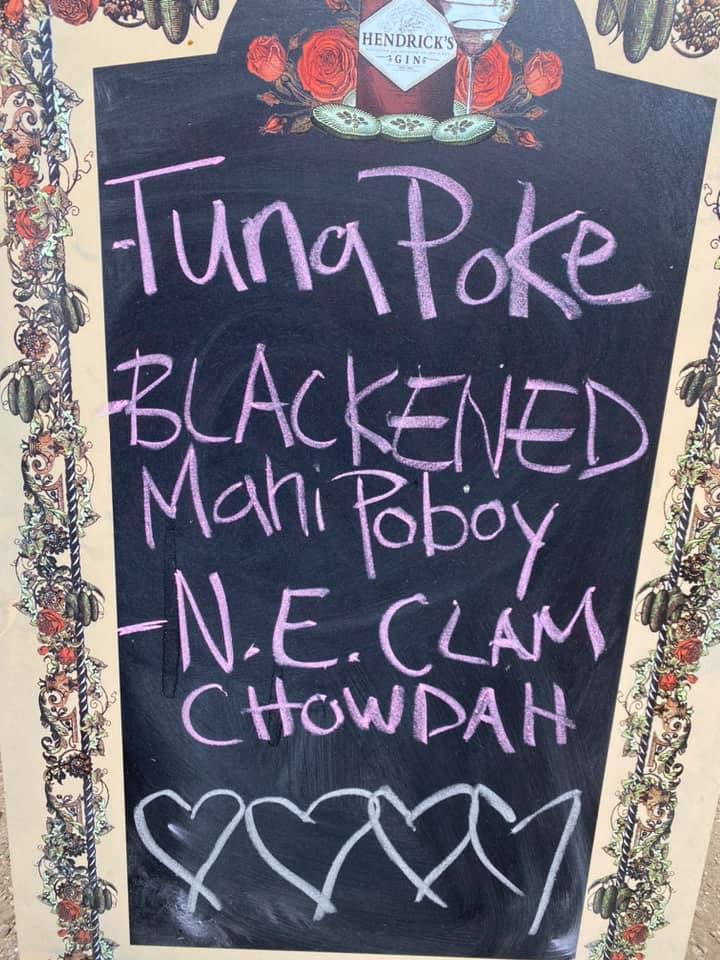 HENDRICK'S
GIN
-Tuna Poke
-BLACKENED
Mahi Poboy
-N.E. CLAM
CHOWDAH